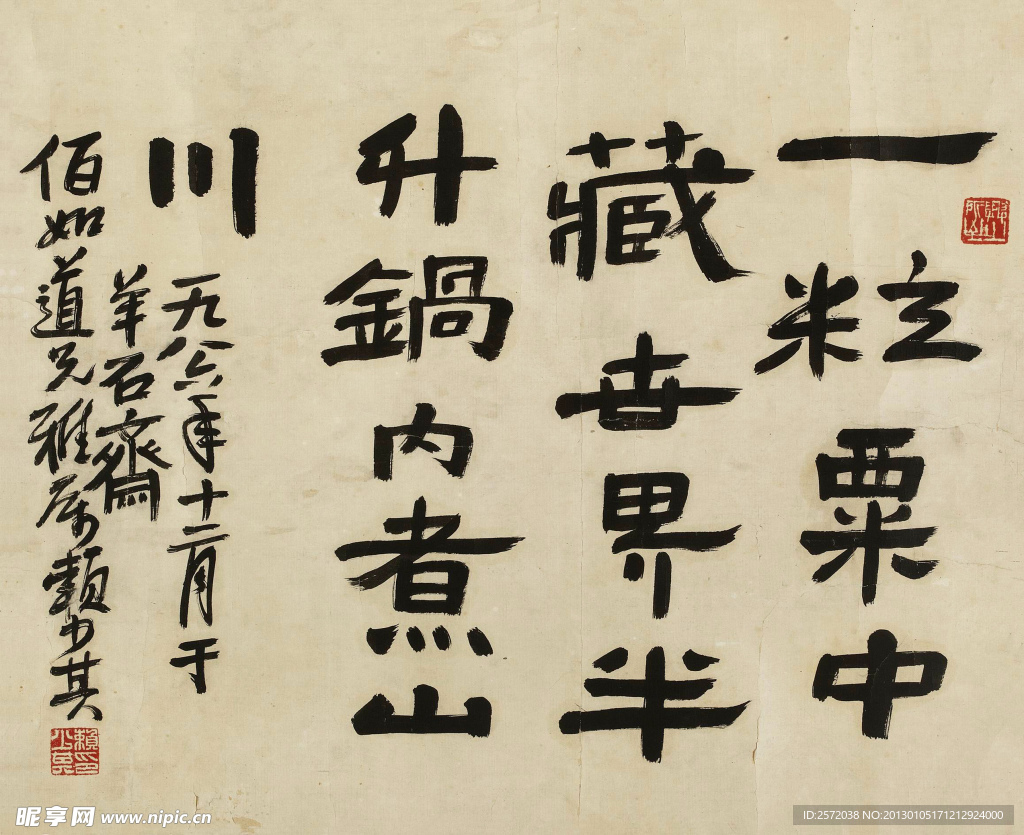 一粒粟中
藏世界半
升鍋内煮山
川
一九八六年十二月于
羊石齋
佰如道兄雅属賴少其
賴少其印
昵享网 www.nipic.cn
ID:2572038 NO:20130105171212924000